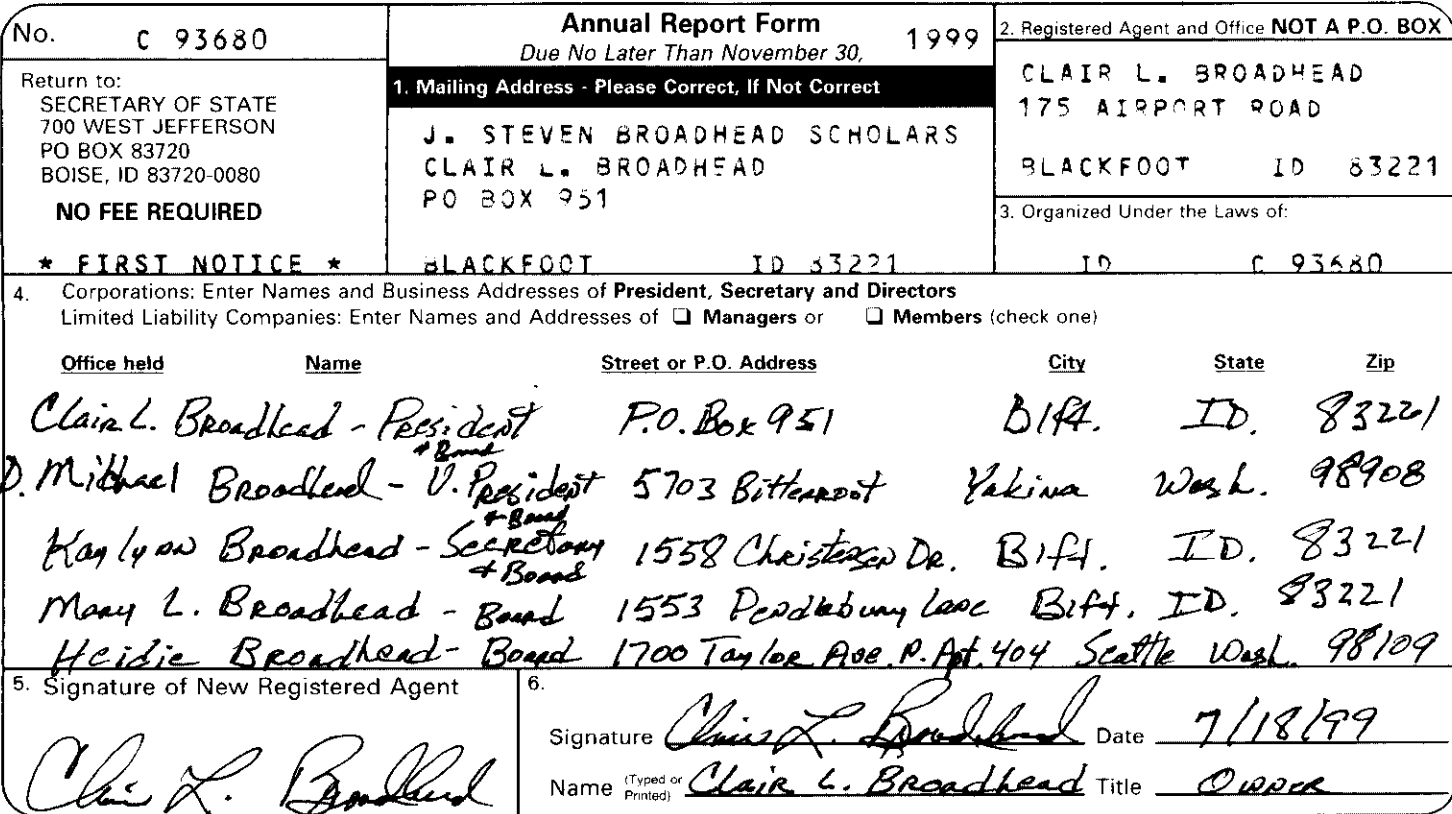 No. C 93680
Annual Report Form 1999
Due No Later Than November 30,
Return to:
SECRETARY OF STATE
700 WEST JEFFERSON
PO BOX 83720
BOISE, ID 83720-0080
NO FEE REQUIRED
* FIRST NOTICE *
1. Mailing Address - Please Correct, If Not Correct
J. STEVEN BROADHEAD SCHOLARS
CLAIR L. BROADHEAD
PO BOX 951
BLACKFOOT ID 83221
2. Registered Agent and Office NOT A P.O. BOX
CLAIR L. BROADHEAD
175 AIRPORT ROAD
BLACKFOOT ID 83221
3. Organized Under the Laws of:
ID C 93680
4. Corporations: Enter Names and Business Addresses of President, Secretary and Directors
Limited Liability Companies: Enter Names and Addresses of ☐ Managers or ☐ Members (check one)
Office held Name Street or P.O. Address City State Zip
Clair L. Broadhead - President P.O. Box 951 Blft. ID. 83221
+ Board
D. Michael Broadhead - V. President 5703 Bitterroot Yakima Wash. 98908
+ Board
Kaylynn Broadhead - Secretary 1558 Christensen Dr. Blft. ID. 83221
+ Board
Mary L. Broadhead - Board 1553 Pendlebury Lane Blft. ID. 83221
Heidie Broadhead - Board 1700 Taylor Ave. N. Apt. 404 Seattle Wash. 98109
5. Signature of New Registered Agent
Clair L. Broadhead
6.
Signature Clair L. Broadhead Date 7/18/99
Name (Typed or Printed) Clair L. Broadhead Title Owner